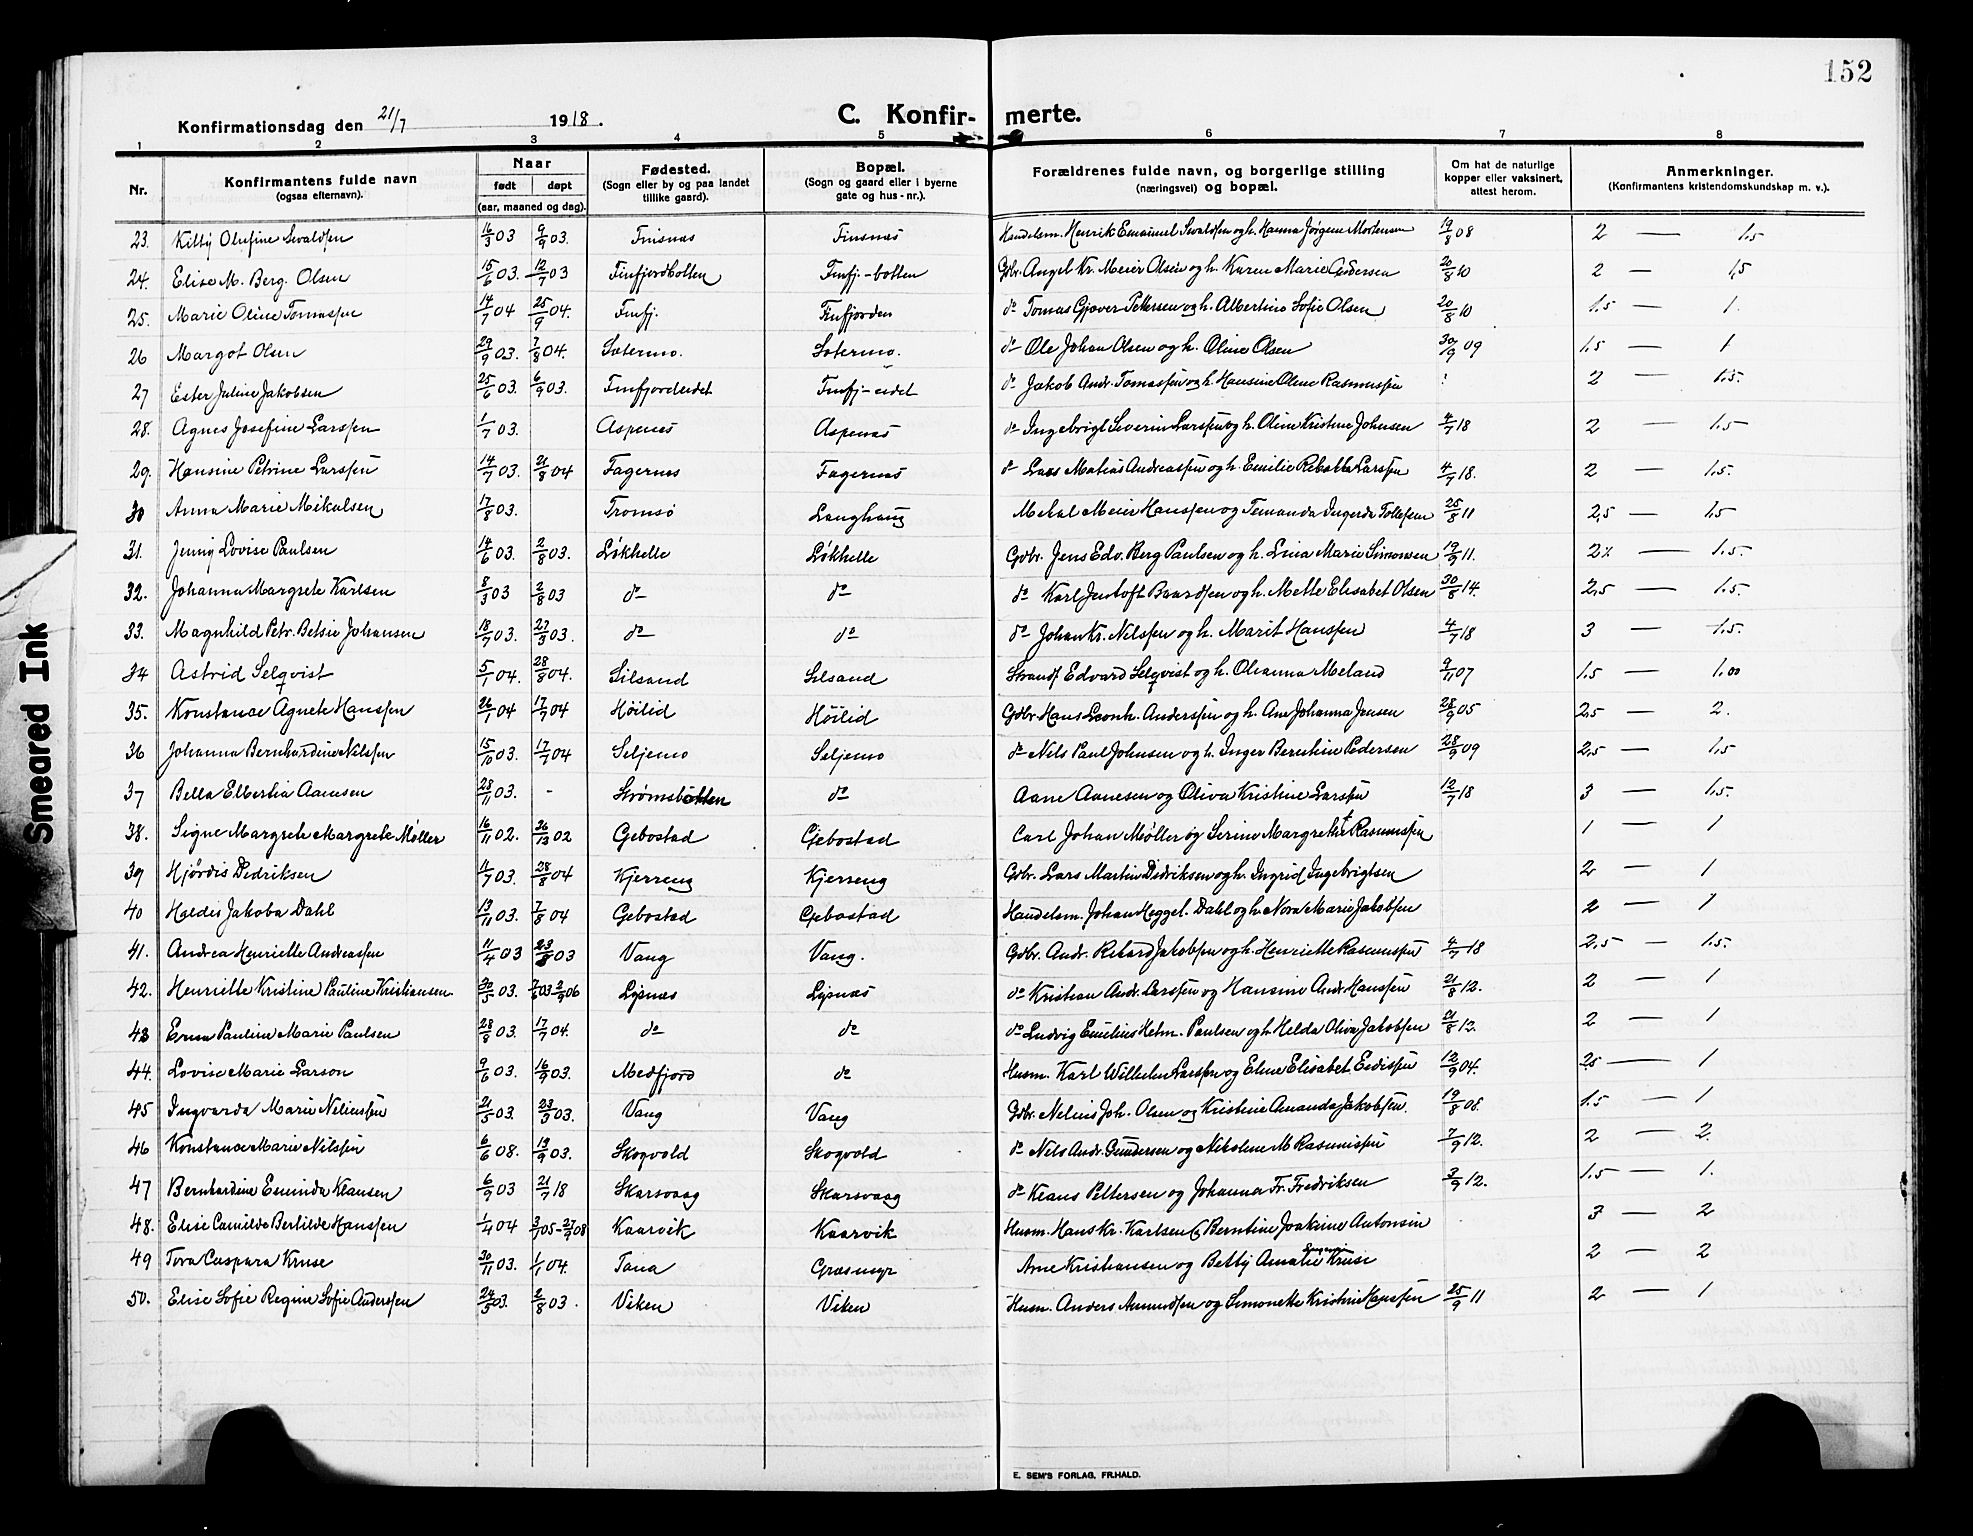 152
Konfirmationsdag den 21/7 1918. C. Konfir- merte.
1 2 3 4 5 6 7 8
Nr. Konfirmantens fulde navn (ogsaa efternavn). Naar født døpt (aar, maaned og dag). Fødested. (Sogn eller by og paa landet tillike gaard). Bopæl. (Sogn og gaard eller i byerne gate og hus-nr.). Forældrenes fulde navn, og borgerlige stilling (næringsvei) og bopæl. Om hat de naturlige kopper eller vaksinert, attest herom. Anmerkninger. (Konfirmantens kristendomskundskap m. v.).
23. Kitty Olufine Sivaldsen 16/3 03 9/9 03. Finsnæs Finsnæs Handelsm. Henrik Emanuel Sivaldsen og h. Hanna Jørgine Mortensen 19/8 08 2 — 1.5
24. Elise M. Berg. Olsen 15/6 03. 12/7 03 Finfjordbotten Finfj-botten Gdbr. Angel Kr. Meier Olsen og h. Karen Marie Andersen 20/8 10 2 — 1,5
25. Marie Oline Tomassen 14/7 04 25/9 04. Finfj. Finfjorden do Tomas Gjøver Pettersen og h. Albertine Sofie Olsen 20/8 10 1.5 — 1.
26 Margot Olsen 29/9 03. 7/8 04. Sætermo. Sætermo. do Ole Johan Olsen og h. Oline Olsen 30/9 09 1.5 — 1
27 Ester Juline Jakobsen 25/6 03. 6/9 03. Finfjordeidet Finfj-eidet do Jakob Andr. Tomassen og h. Hansine Oline Rasmussen : 2 — 1.5.
28. Agnes Josefine Larssen 1/7 03. Aspenes Aspenæs do Ingebrigt Severin Larssen og h. Oline Kristine Johnsen 4/7 18 2 — 1.5
29. Hansine Petrine Larssen 14/7 03. 21/8 04 Fagernes Fagernæs do Lars Matias Andreassen og h. Emilie Rebekka Larssen 4/7 18. 2 — 1.5.
30 Anna Marie Mikalsen 17/8 03. Tromsø Langhaug Mekal Meier Hanssen og Fernanda Ingerda Tollefsen 25/8 11 2,5 — 1.5
31. Jenny Lovise Paulsen 14/6 03. 2/8 03. Løkhelle Løkhelle Gdbr. Jens Edv. Berg Paulsen og h. Lina Marie Simonsen 19/9 11. 2. — 1.5.
32. Johanna Margrete Karlsen 8/3 03 2/8 03 do do do Karl Jentoft Baardsen og h. Mette Elisabet Olsen 30/8 14. 2,5 — 1.5.
33. Magnhild Petr. Betsie Johansen 18/7 03. 27/3 03. do do do Johan Kr. Nilssen og h. Marit Hanssen 4/7 18 3 — 1.5.
34 Astrid Selqvist 5/1 04. 28/8 04. Silsand Silsand Strands. Edvard Selqvist og h. Oleanna Meland 9/11 07 1.5 — 1.00
35. Konstance Agnete Hanssen 26/1 04 17/7 04 Høilid Høilid Gdbr. Hans Leonh. Anderssen og h. Ane Johanna Jensen 28/9 05 2,5 — 2.
36 Johanna Bernhardine Nilssen 15/10 03. 17/7 04 Seljemo Seljemo do Nils Paul Johnsen og h. Inger Berntine Pedersen 28/9 09 2,5 — 1.5
37 Bella Elbertia Aanesen 28/11 03. - Strømsbotten do Aane Aanesen og Oliva Kristine Larssen 12/7 18 3 — 1.5.
38. Signe Margrete Margrete Møller 16/11 02. 26/12 02 Gebostad Gjebostad Carl Johan Møller og Serine Margrethe Rasmussen 1 — 1
39 Hjørdis Dedriksen 11/7 03. 28/8 04 Kjerreng Kjerreng Gdbr. Lars Martin Didriksen og h. Ingrid Ingebrigtsen 2 — 1
40 Heldis Jakoba Dahl 13/11 03. 7/8 04 Gebostad Gjebostad Handelsm. Johan Heggel. Dahl og h. Nora Marie Jakobsen 2 — 1
41. Andrea Henriette Andreassen 11/4 03 23/8 03 Vang Vang. Gdbr. Andr. Rikard Jakobsen og h. Henriette Rasmussen 4/7 18 2.5 — 1.5.
42. Henriette Kristine Pauline Kristiansen 30/5 03. 7/6 03 - 2/9 06 Lysnæs Lysnæs do Kristian Andr. Larssen og Hansine Andr. Hanssen 21/8 12. 2 — 1
43 Erna Pauline Marie Paulsen 28/8 03. 17/7 04. do do do Ludvig Emelius Helm. Paulsen og h. Helda Oliva Jakobsen 21/8 12. 2 — 1
44. Lovise Marie Larson 9/6 03. 16/9 03. Medfjord do Husm. Karl Wilhelm Larssen og Eline Elisabet Eidissen 12/9 04. 2.5 — 1
45 Ingvarda Marie Neliussen 21/5 03. 23/9 03. Vang Vang Gdbr. Nelius Joh. Olsen og Kristine Amanda Jakobsen. 19/8 08. 1.5 — 1
46 Konstance Marie Nilssen 6/6 08. 13/9 03. Skogvold Skogvold do Nils Andr. Gundersen og Nikoline M Rasmussen 7/9 12. 2 — 2.
47 Bernhardine Eminda Klausen 6/9 03 21/7 18 Skarsvaag Skarsvaag do Klaus Pettersen og Johanna Fr. Fredriksen 3/9 12. 1.5 — 1.
48. Elise Camilde Bertilde Hanssen 1/4 04 3/1 05-27/9 08 Kaarvik Kaarvik Husm. Hans Kr. Karlsen og Berntine Joakime Antonsen 3 — 2
49 Tora Caspara Kruse 30/11 03. 1/1 04. Tana Græsmyr Arne Kristiansen og Betty Amalie Kruse 2 — 2
50. Elise Sofie Regine Sofie Anderssen 24/5 03. 2/8 03. Viken Viken Husm. Anders Amundsen og Simonette Kristine Hanssen 25/9 11 2 — 1
E. SEM'S FORLAG, FR.HALD.
Smeared Ink